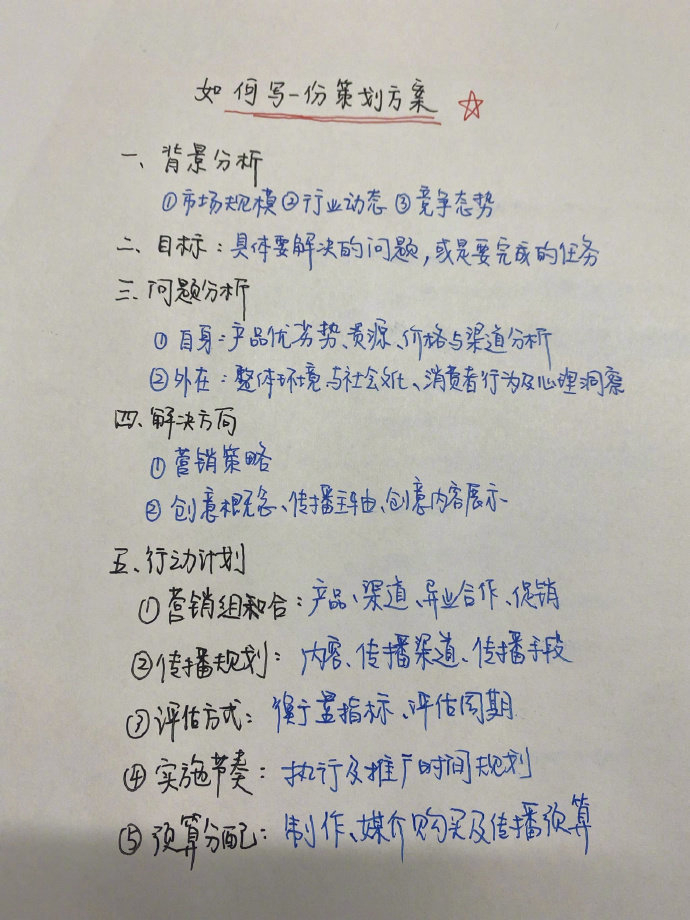 如何写一份策划方案
一、背景分析
①市场规模②行业动态③竞争态势
二、目标：具体要解决的问题，或是要完成的任务
三、问题分析
①自身：产品优劣势、资源、价格与渠道分析
②外在：整体环境与社会文化、消费者行为及心理洞察
四、解决方向
①营销策略
②创意概念、传播主轴、创意内容展示
五、行动计划
①营销组和合：产品、渠道、异业合作、促销
②传播规划：内容、传播渠道、传播手段
③评估方式：衡量指标、评估周期
④实施节奏：执行及推广时间规划
⑤预算分配：制作、媒介购买及传播预算